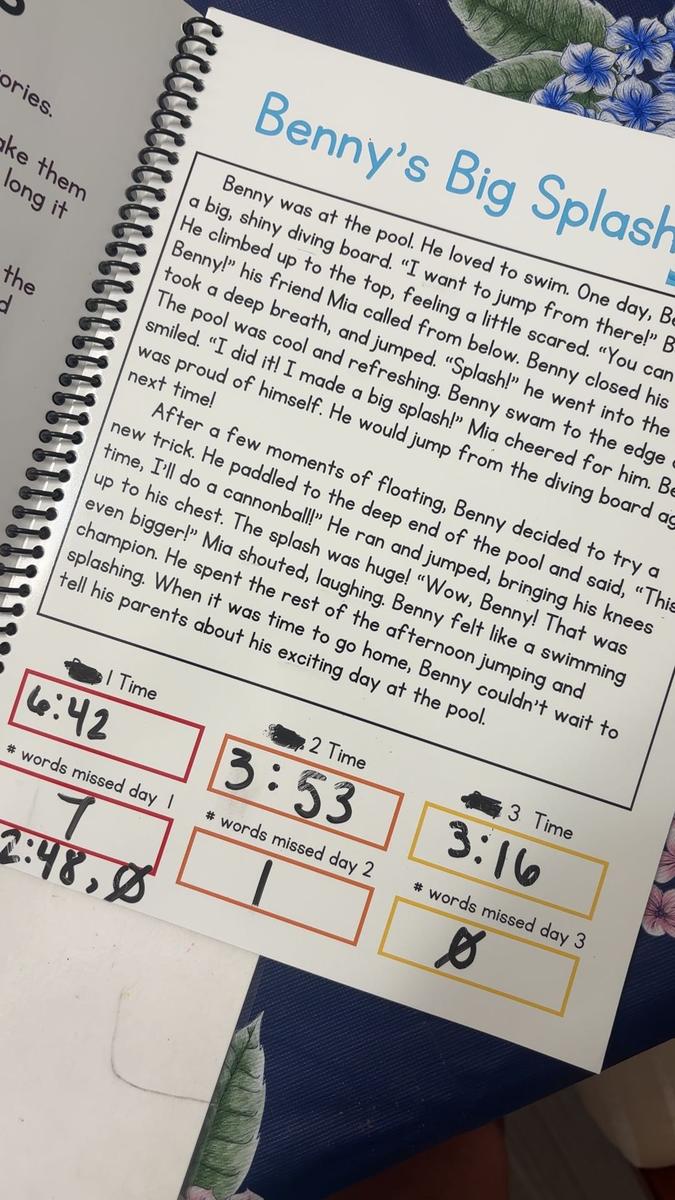 ories.
ake them
long it
the
Benny's Big Splash
Benny was at the pool. He loved to swim. One day, Be
a big, shiny diving board. "I want to jump from there!" B
He climbed up to the top, feeling a little scared. "You can
Benny!" his friend Mia called from below. Benny closed his
took a deep breath, and jumped. "Splash!" he went into the
The pool was cool and refreshing. Benny swam to the edge
smiled. "I did it! I made a big splash!" Mia cheered for him. Be
was proud of himself. He would jump from the diving board ag
next time!
After a few moments of floating, Benny decided to try a
new trick. He paddled to the deep end of the pool and said, "This
time, I'll do a cannonball!" He ran and jumped, bringing his knees
up to his chest. The splash was huge! "Wow, Benny! That was
even bigger!" Mia shouted, laughing. Benny felt like a swimming
champion. He spent the rest of the afternoon jumping and
splashing. When it was time to go home, Benny couldn't wait to
tell his parents about his exciting day at the pool.
1 Time
6:42
# words missed day 1
7
2:48, Ø
2 Time
3:53
# words missed day 2
1
3 Time
3:16
# words missed day 3
Ø